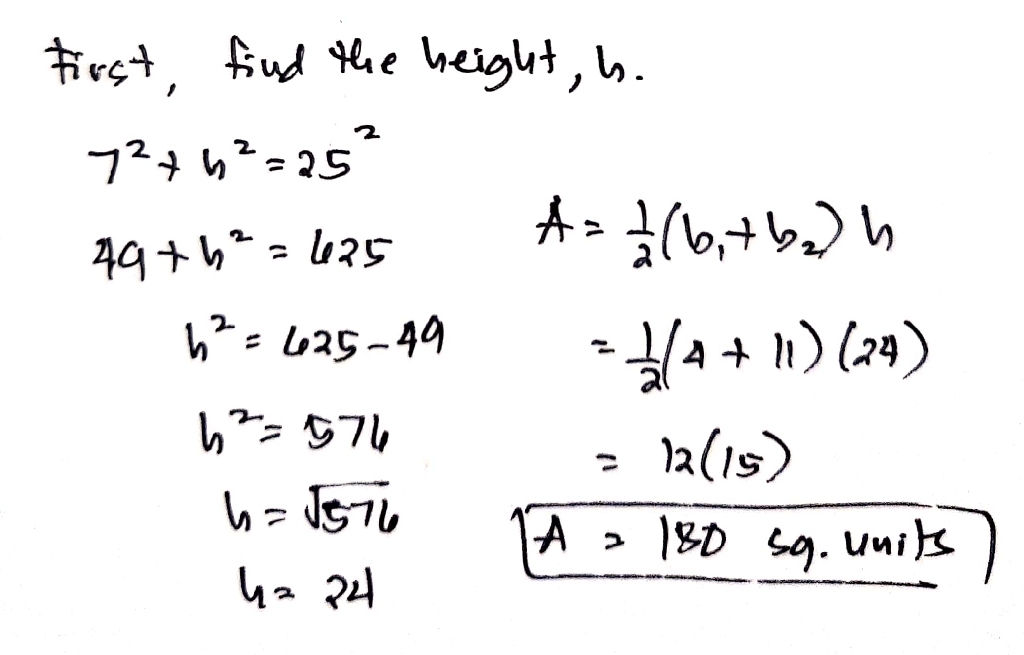 First, find the height, h.
7² + h² = 25²
49 + h² = 625
h² = 625 - 49
h² = 576
h = √576
h = 24
A = 1/2 (b₁ + b₂) h
= 1/2 (4 + 11) (24)
= 12 (15)
A = 180 sq. units